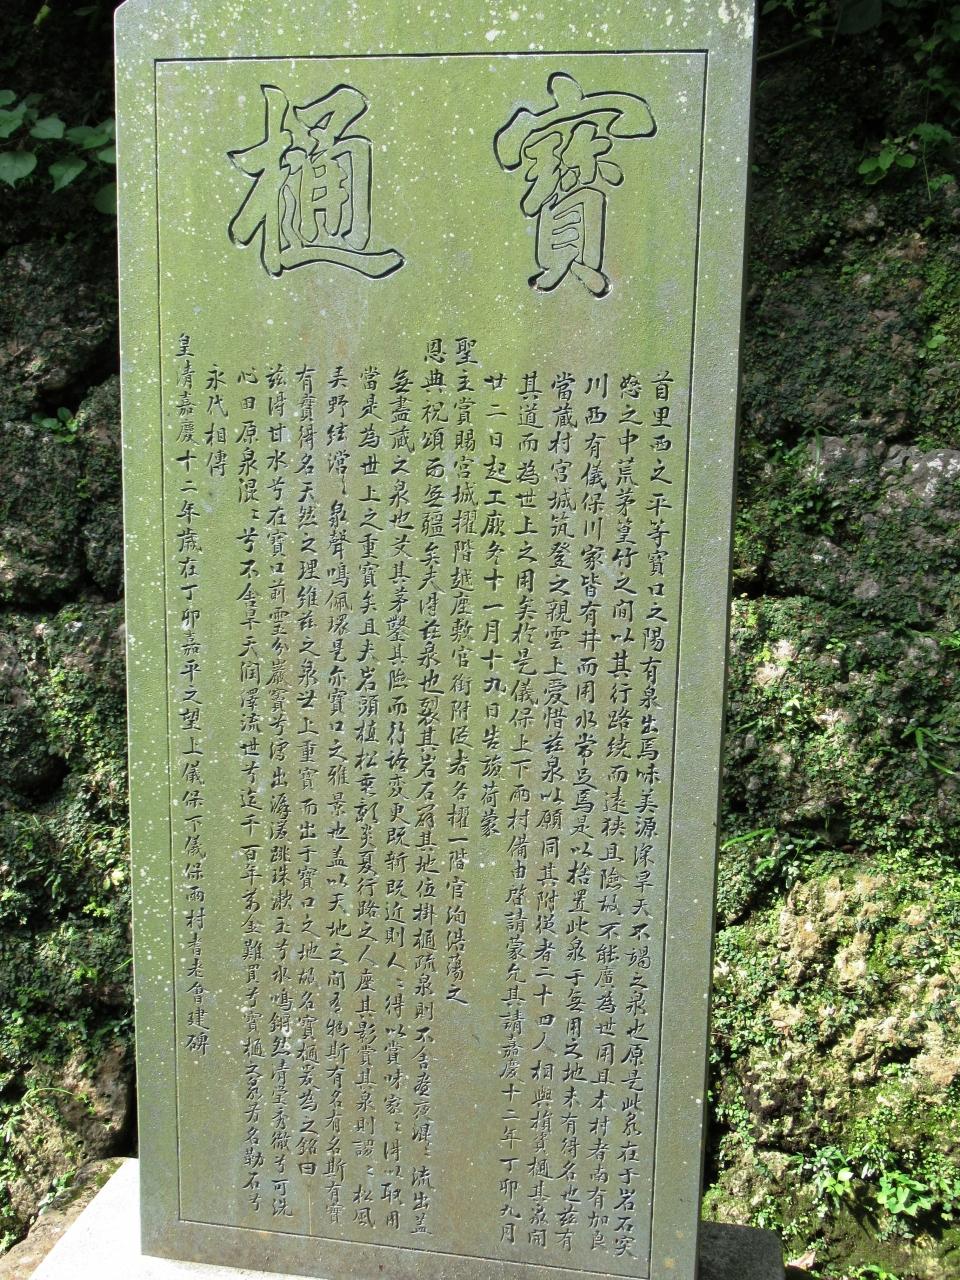 寶樋
首里西之平等寶口之陽有泉出焉味美源深旱天不竭之泉也原是此泉在于岩石突
怒之中荒茅篁竹之间以其行路绕而遠狭且險故不能廣為世用且本村者南有加良
川西有儀保川家皆有井而用水常足焉是以捨置此泉于無用之地未有得名也茲有
當蔵村宮城筑登之親雲上愛惜茲泉以願同其附従者二十四人相與損資樋其泉開
其道而為世上之用矣於是儀保上下両村備由啓請蒙允其請嘉慶十二年丁卯九月
廿二日起工厥冬十一月十九日告竣荷蒙
聖主賞賜宮城擢階越座敷官銜附従者各擢一階官洵浩蕩之
恩典祝頌而無疆矣夫得茲泉也裂其岩石砕其地位掛樋疏泉則不舎晝夜混〻流出盖
無盡蔵之泉也艾其茅鑿其險而行路変更既新既近則人〻得以賞味家〻得以取用
當是為世上之重寶矣且夫岩頭植松垂影炎夏行路之人座其影賞其泉則謖〻松風
弄野絃淙〻泉聲鳴佩環是亦寶口之雅景也盖以天地之间有物斯有名有名斯有實
有實得名天然之理維茲之泉世上重寶而出于寶口之地故名寶樋爰為之銘曰
茲得甘水兮在寶口前霊分巖竇兮湧出潺湲跳珠漱玉兮氷鳴鏘然清瑩秀徹兮可洗
心田原泉混〻兮不舎旱天润澤流世兮迄千百年萬金難買兮寶樋之泉芳名勒石兮
永代相傳
皇清嘉慶十二年歳在丁卯嘉平之望上儀保下儀保両村耆老會建碑